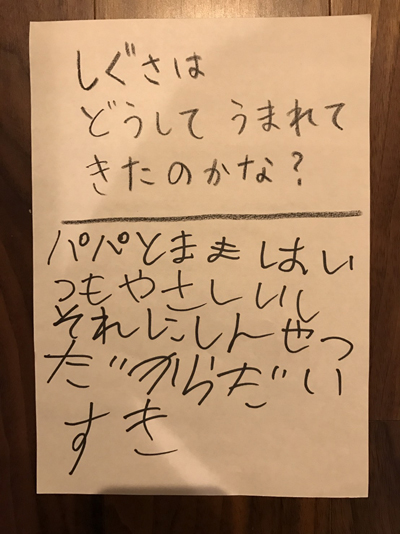 しぐさは
どうして うまれて
きたのかな?
パパとままはい
つもやさしいし
それにしんせつ
だからだい
すき